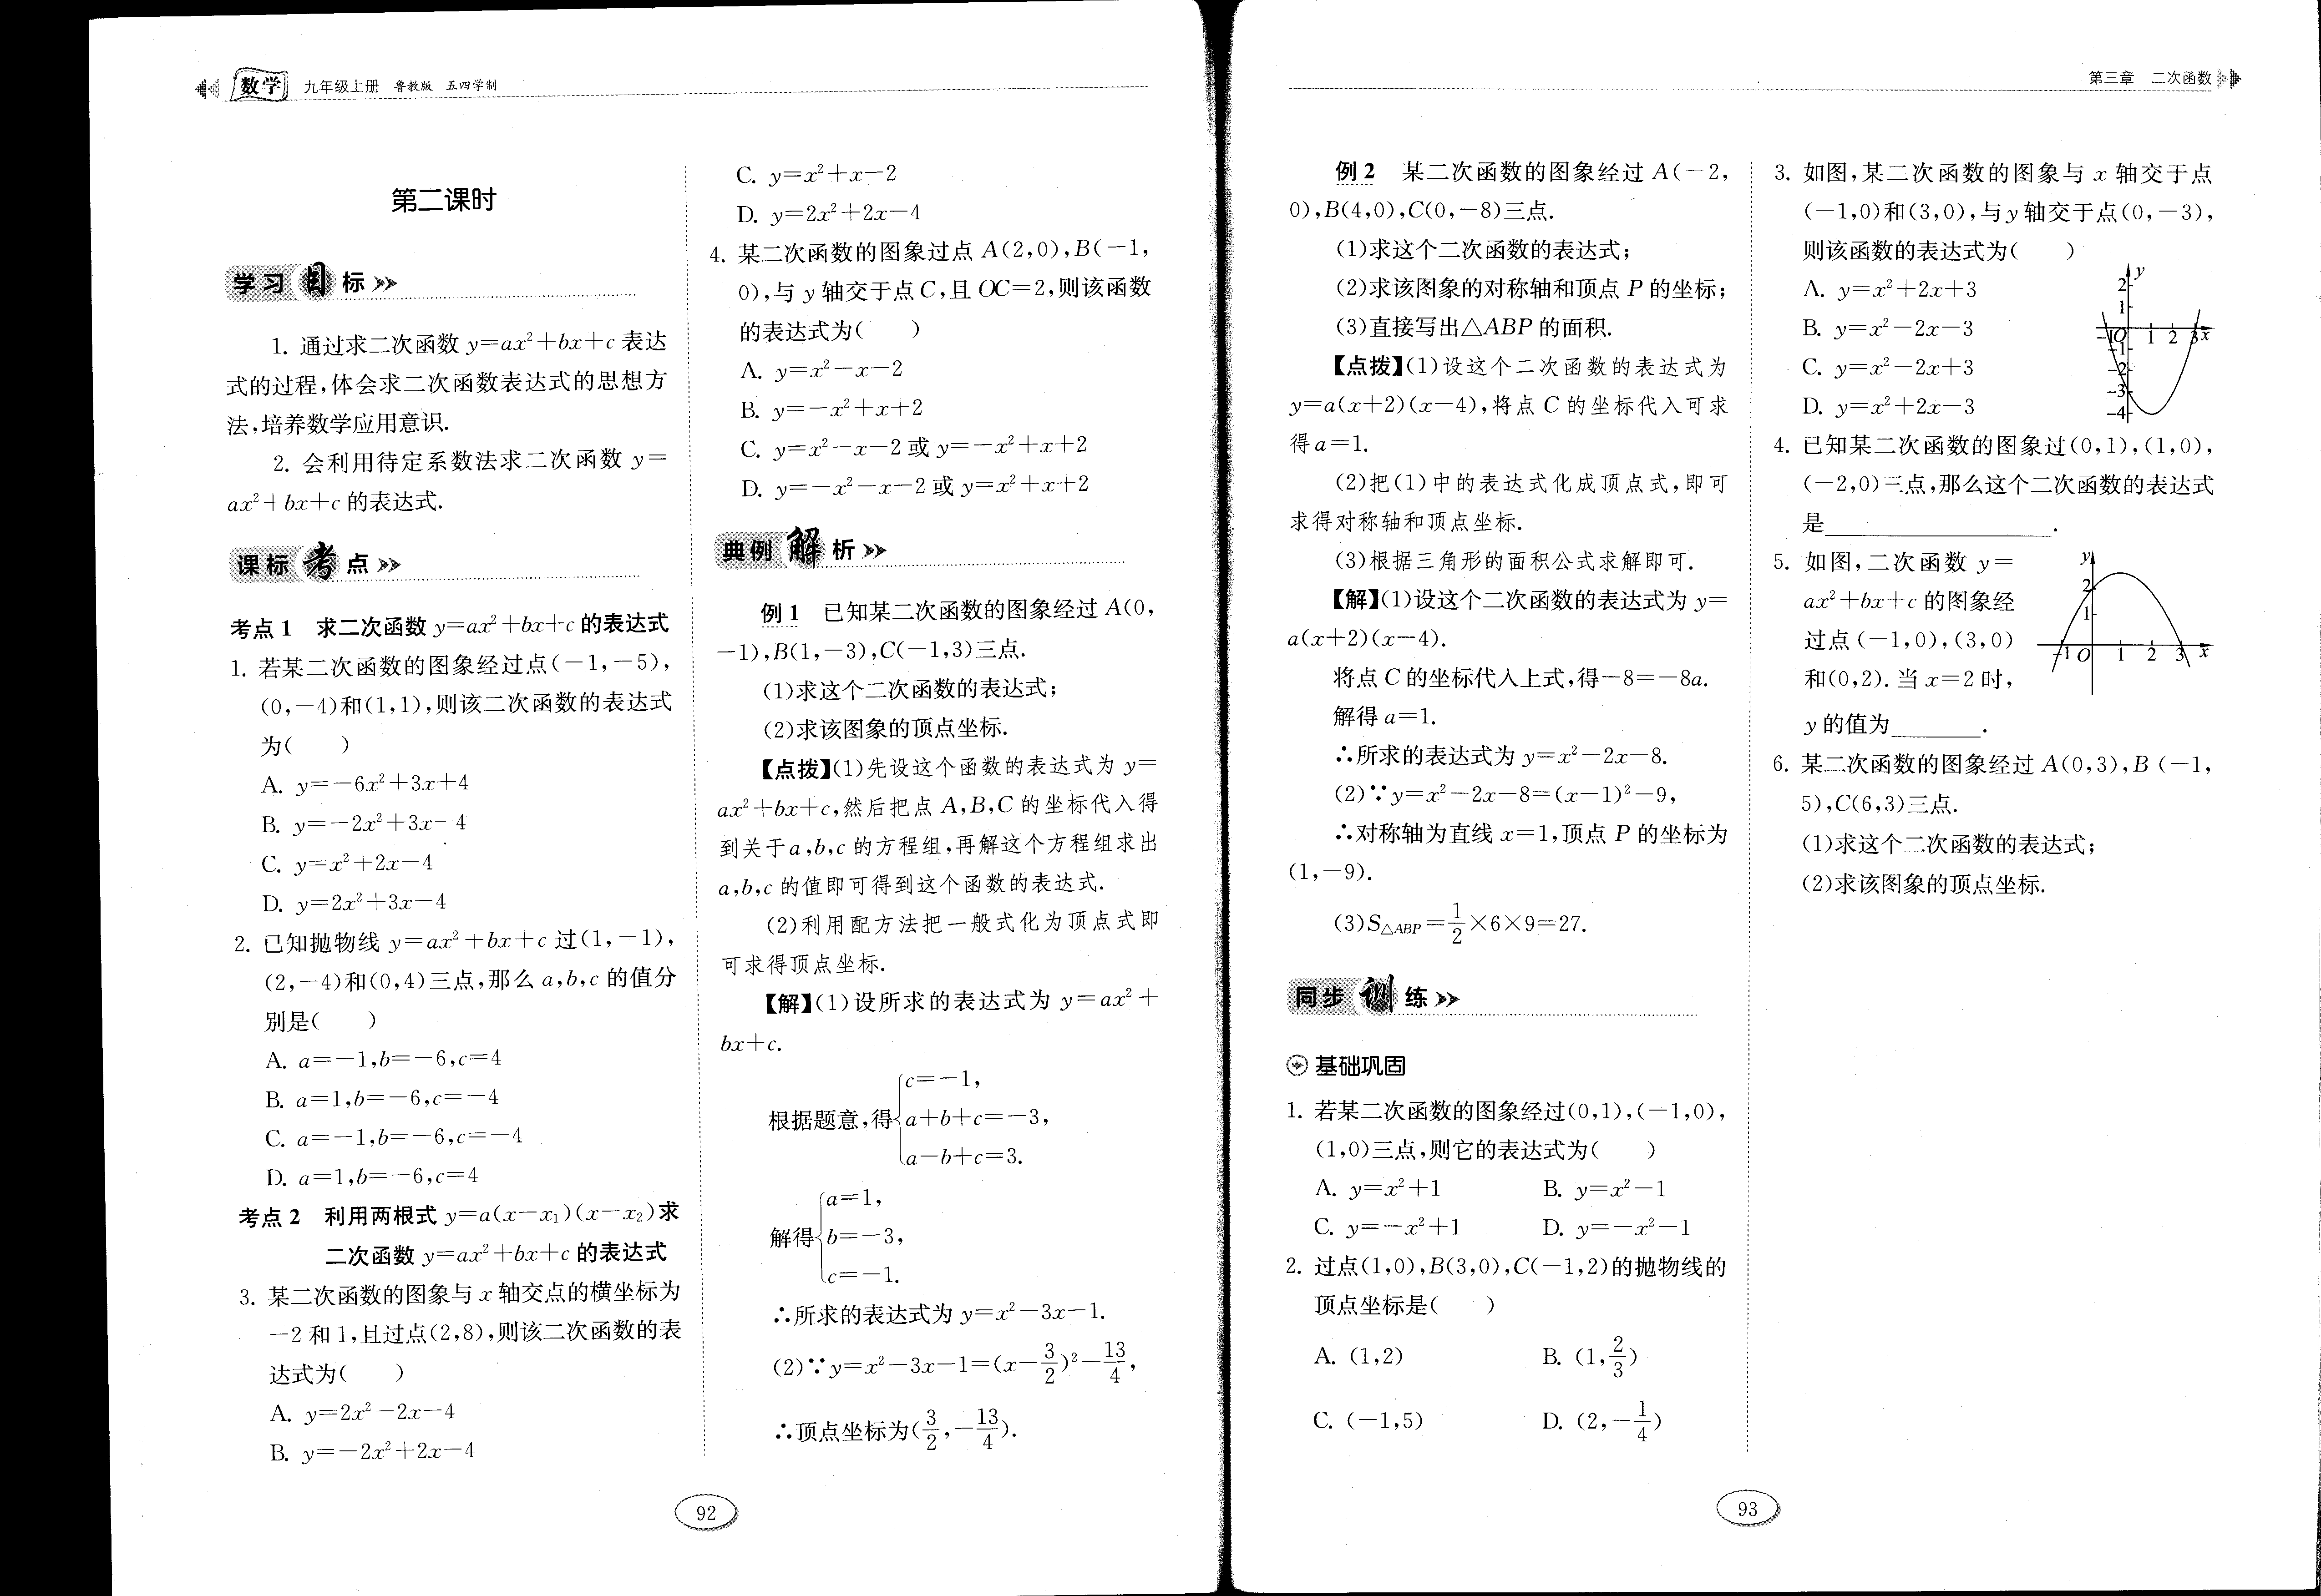 数学 九年级上册 鲁教版 五四学制
第二课时
学习目标
1. 通过求二次函数 y=ax²+bx+c 表达
式的过程,体会求二次函数表达式的思想方
法,培养数学应用意识.
2. 会利用待定系数法求二次函数 y=
ax²+bx+c 的表达式.
课标考点
考点 1 求二次函数 y=ax²+bx+c 的表达式
1. 若某二次函数的图象经过点(-1,-5),
(0,-4)和(1,1),则该二次函数的表达式
为( )
A. y=-6x²+3x+4
B. y=-2x²+3x-4
C. y=x²+2x-4
D. y=2x²+3x-4
2. 已知抛物线 y=ax²+bx+c 过(1,-1),
(2,-4)和(0,4)三点,那么 a,b,c 的值分
别是( )
A. a=-1,b=-6,c=4
B. a=1,b=-6,c=-4
C. a=-1,b=-6,c=-4
D. a=1,b=-6,c=4
考点 2 利用两根式 y=a(x-x₁)(x-x₂)求
二次函数 y=ax²+bx+c 的表达式
3. 某二次函数的图象与 x 轴交点的横坐标为
-2 和 1,且过点(2,8),则该二次函数的表
达式为( )
A. y=2x²-2x-4
B. y=-2x²+2x-4
C. y=x²+x-2
D. y=2x²+2x-4
4. 某二次函数的图象过点 A(2,0),B(-1,
0),与 y 轴交于点 C,且 OC=2,则该函数
的表达式为( )
A. y=x²-x-2
B. y=-x²+x+2
C. y=x²-x-2 或 y=-x²+x+2
D. y=-x²-x-2 或 y=x²+x+2
典例解析
例 1 已知某二次函数的图象经过 A(0,
-1),B(1,-3),C(-1,3)三点.
(1)求这个二次函数的表达式;
(2)求该图象的顶点坐标.
【点拨】(1)先设这个函数的表达式为 y=
ax²+bx+c,然后把点 A,B,C 的坐标代入得
到关于 a,b,c 的方程组,再解这个方程组求出
a,b,c 的值即可得到这个函数的表达式.
(2)利用配方法把一般式化为顶点式即
可求得顶点坐标.
【解】(1)设所求的表达式为 y=ax²+
bx+c.
c=-1,
根据题意,得{a+b+c=-3,
a-b+c=3.
a=1,
解得{b=-3,
c=-1.
∴所求的表达式为 y=x²-3x-1.
(2)∵y=x²-3x-1=(x-3/2)²-13/4,
∴顶点坐标为(3/2,-13/4).
92
第三章 二次函数
例 2 某二次函数的图象经过 A(-2,
0),B(4,0),C(0,-8)三点.
(1)求这个二次函数的表达式;
(2)求该图象的对称轴和顶点 P 的坐标;
(3)直接写出△ABP 的面积.
【点拨】(1)设这个二次函数的表达式为
y=a(x+2)(x-4),将点 C 的坐标代入可求
得 a=1.
(2)把(1)中的表达式化成顶点式,即可
求得对称轴和顶点坐标.
(3)根据三角形的面积公式求解即可.
【解】(1)设这个二次函数的表达式为 y=
a(x+2)(x-4).
将点 C 的坐标代入上式,得-8=-8a.
解得 a=1.
∴所求的表达式为 y=x²-2x-8.
(2)∵y=x²-2x-8=(x-1)²-9,
∴对称轴为直线 x=1,顶点 P 的坐标为
(1,-9).
(3)S△ABP=1/2×6×9=27.
同步训练
基础巩固
1. 若某二次函数的图象经过(0,1),(-1,0),
(1,0)三点,则它的表达式为( )
A. y=x²+1 B. y=x²-1
C. y=-x²+1 D. y=-x²-1
2. 过点(1,0),B(3,0),C(-1,2)的抛物线的
顶点坐标是( )
A. (1,2) B. (1,2/3)
C. (-1,5) D. (2,-1/4)
3. 如图,某二次函数的图象与 x 轴交于点
(-1,0)和(3,0),与 y 轴交于点(0,-3),
则该函数的表达式为( )
A. y=x²+2x+3
B. y=x²-2x-3
C. y=x²-2x+3
D. y=x²+2x-3
y
2
1
-1 O 1 2 3 x
-1
-2
-3
-4
4. 已知某二次函数的图象过(0,1),(1,0),
(-2,0)三点,那么这个二次函数的表达式
是____________.
5. 如图,二次函数 y=
ax²+bx+c 的图象经
过点(-1,0),(3,0)
和(0,2). 当 x=2 时,
y 的值为______.
y
2
1
-1 O 1 2 3 x
6. 某二次函数的图象经过 A(0,3),B (-1,
5),C(6,3)三点.
(1)求这个二次函数的表达式;
(2)求该图象的顶点坐标.
93